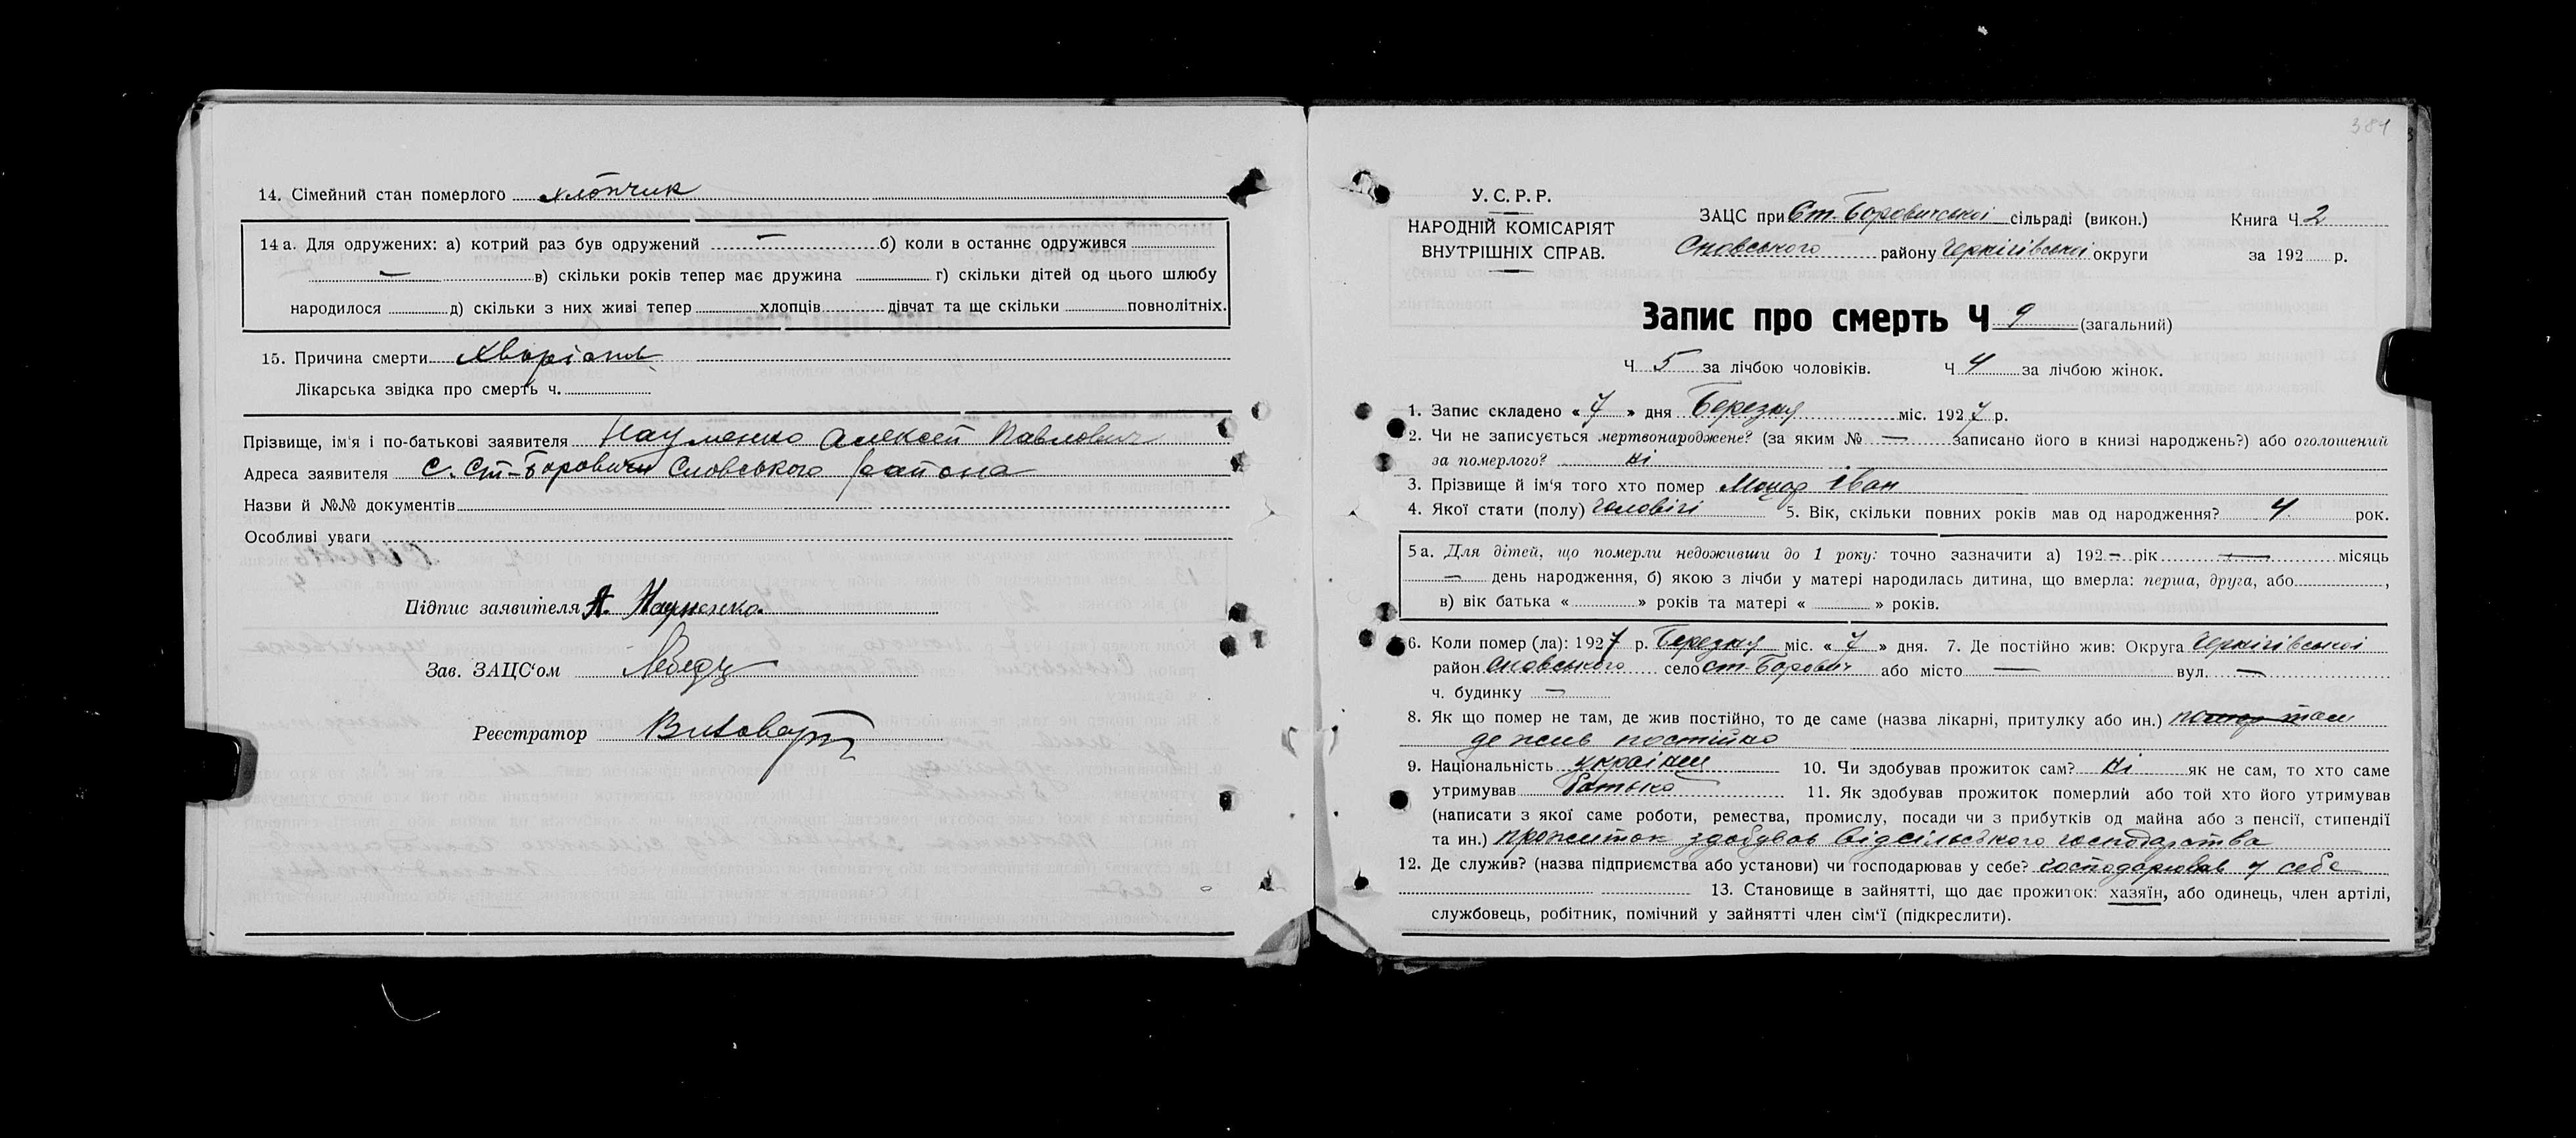 14. Сімейний стан померлого хлопчик
14 а. Для одружених: а) котрий раз був одружений — б) коли в останнє одружився
— в) скільки років тепер має дружина г) скільки дітей од цього шлюбу
народилося д) скільки з них живі тепер хлопців дівчат та ще скільки повнолітніх.
15. Причина смерти
Лікарська звідка про смерть ч.
Прізвище, ім'я і по-батькові заявителя Науменко Алексей Павлович
Адреса заявителя с. Ст-Боровичи Сновського района
Назви й №№ документів
Особливі уваги
Підпис заявителя А. Науменко
Зав. ЗАЦС'ом Лебедь
Реєстратор
381
У. С. Р. Р.
НАРОДНІЙ КОМІСАРІЯТ
ВНУТРІШНІХ СПРАВ.
ЗАЦС при Ст. Боровичської сільраді (викон.)
Книга Ч 2
Сновського району Чернігівської округи
за 192 р.
Запис про смерть Ч 9 (загальний)
Ч 5 за лічбою чоловіків. Ч 4 за лічбою жінок.
1. Запис складено « 7 » дня Березня міс. 1927 р.
2. Чи не записується мертвонароджене? (за яким № — записано його в книзі народжень?) або оголошений
за померлого? ні
3. Прізвище й ім'я того хто помер Іван
4. Якої стати (полу) чоловічі 5. Вік, скільки повних років мав од народження? 4 рок.
5 а. Для дітей, що померли недоживши до 1 року: точно зазначити а) 192 – рік — місяць
— день народження, б) якою з лічби у матері народилась дитина, що вмерла: перша, друга, або ,
в) вік батька « » років та матері « » років.
6. Коли помер (ла): 1927 р. Березня міс. « 7 » дня. 7. Де постійно жив: Округа Чернігівської
район Сновського село Ст. Борович або місто — вул. —
ч. будинку —
8. Як що помер не там, де жив постійно, то де саме (назва лікарні, притулку або ин.) там
де жив постійно
9. Національність українец 10. Чи здобував прожиток сам? ні як не сам, то хто саме
утримував батько 11. Як здобував прожиток померлий або той хто його утримував
(написати з якої саме роботи, ремества, промислу, посади чи з прибутків од майна або з пенсії, стипендії
та ин.) прожиток здобував від сільського господарства
12. Де служив? (назва підприємства або установи) чи господарював у себе? господарював у себе
13. Становище в зайнятті, що дає прожиток: хазяїн, або одинець, член артілі,
службовець, робітник, помічний у зайнятті член сім'ї (підкреслити).